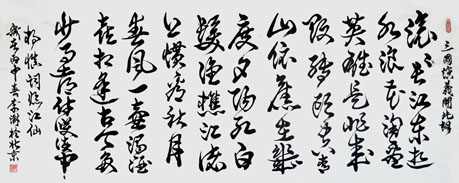 三國演義開篇詞
滚滚长江东逝
水浪花淘盡
英雄是非成
败转头空青
山依舊在幾
度夕陽红白
髮渔樵江渚
上惯看秋月
春风一壶浊酒
喜相逢古今多
少事都付笑谈中
杨慎词临江仙
歲在丙申春 於北京